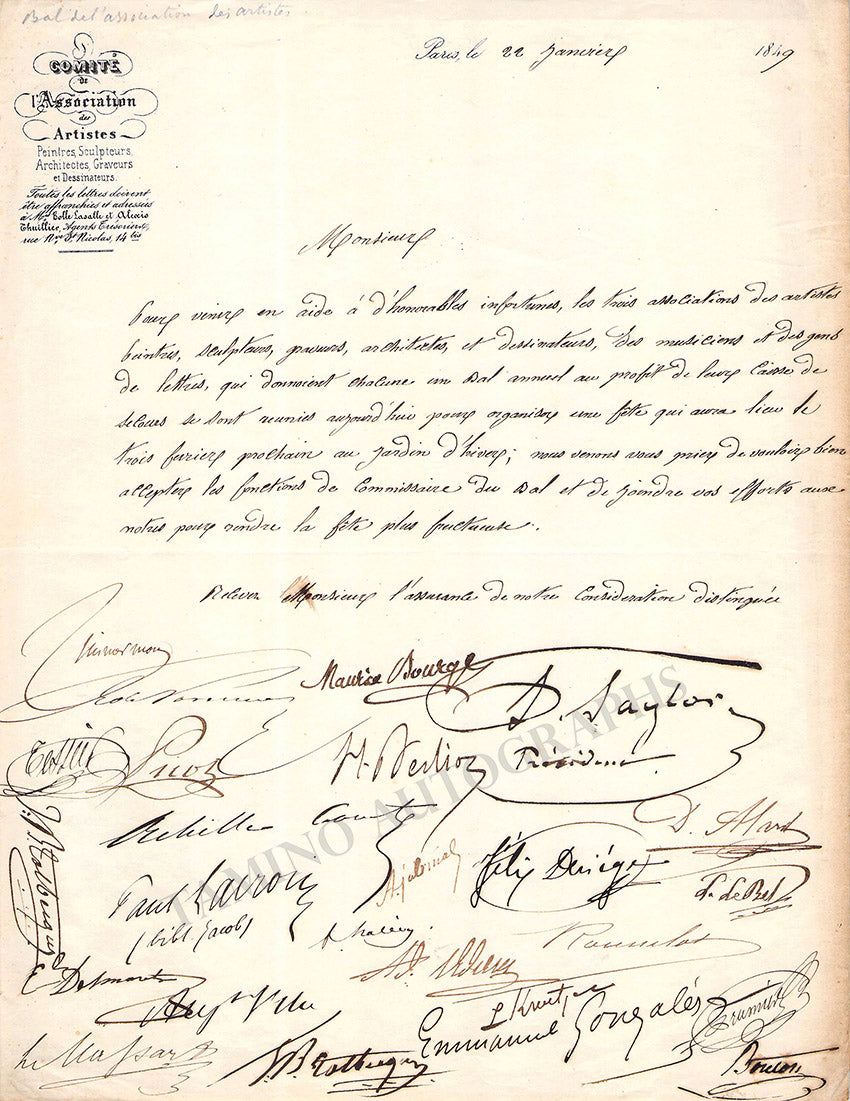 Bal de l'association des artistes
Paris, le 22 janvier 1849
COMITÉ
de
l'Association
des
Artistes
Peintres, Sculpteurs,
Architectes, Graveurs
et Dessinateurs.
Toutes les lettres doivent
être affranchies et adressées
à Mrs Bolle Lasalle et Alexis
Thuillier, Agents Trésoriers,
rue Nve St Nicolas, 14 bis
Monsieur
Pour venir en aide à d'honorables infortunes, les trois associations des artistes
peintres, sculpteurs, graveurs, architectes, et dessinateurs, des musiciens et des gens
de lettres, qui donnoient chacune un Bal annuel au profit de leur Caisse de
secours se sont reunies aujourd'hui pour organiser une fête qui aura lieu le
trois fevrier prochain au Jardin d'hiver; nous venons vous prier de vouloir bien
accepter les fonctions de Commissaire du Bal et de joindre vos efforts aux
notres pour rendre la fête plus fructueuse.
Recevez Monsieur l'assurance de notre Consideration distinguée
Maurice Bourges
B. Taylor
Président
Picot
H. Berlioz
Achille Comte
D. Alard
Paul Lacroix
(bibl. Jacob)
A. jal
Félix
F. Halévy
Ad. Adam
L. Kreutzer
Emmanuel Gonzalès
L. Massart
Bouton
TAMINO AUTOGRAPHS